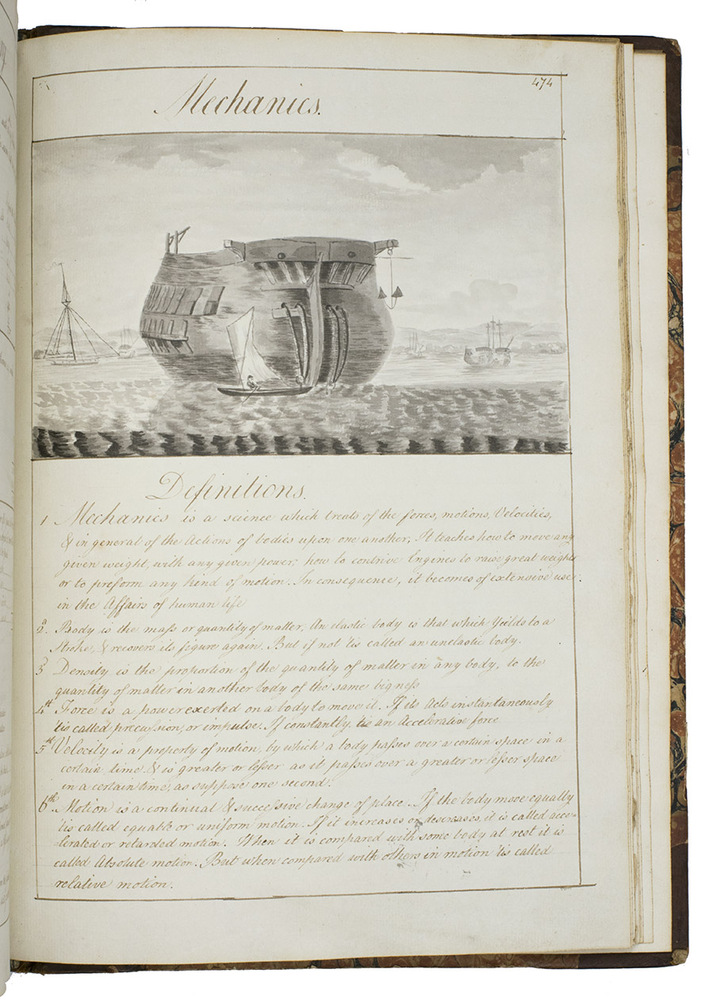 474
Mechanics.
Definitions.
1 Mechanics is a science which treats of the forces, motions, Velocities,
& in general of the Actions of bodies upon one another. It teaches how to move any
given weight, with any given power; how to contrive Engines to raise great weights
or to preform any kind of motion. In consequence, it becomes of extensive use
in the Affairs of human life
2. Body is the mass or quantity of matter, An elastic body is that which Yields to a
Stroke, & recovers its figure again. But if not 'tis called an unelastic body.
3 Density is the proportion of the quantity of matter in any body, to the
quantity of matter in another body of the same bigness
4th Force is a power exerted on a body to move it. If its Acts instantaneously
'tis called percussion, or impulse. If constantly, 'tis an Accelerative force
5th Velocity is a property of motion, by which a body passes over a certain space in a
certain time, & is greater or lesser as it passes over a greater or lesser space
in a certain time, as suppose one second.
6th Motion is a continual & successive change of place. If the body move equally
'tis called equable or uniform motion. If it increases or decreases, it is called acce-
lerated or retarded motion. When it is compared with some body at rest it is
called Absolute motion. But when compared with others in motion 'tis called
relative motion.